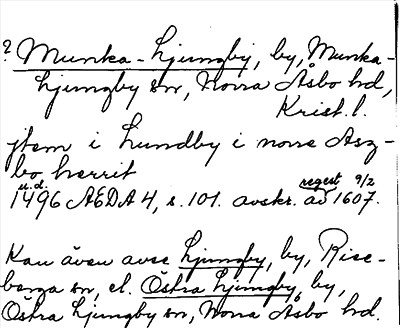 ? Munka-Ljungby, by, Munka-
Ljungby sn, Norra Åsbo hd,
Krist. l.
jtem i Lundby i norre Asz-
bo herrit
u.d. regest 9/2
1496 ÆDA 4, s. 101. avskr. av 1607.
Kan även avse Ljungby, by, Rise-
berga sn, el. Östra Ljungby, by,
Östra Ljungby sn, Norra Åsbo hd.